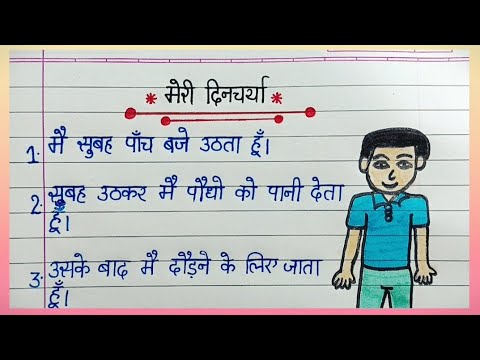 * मेरी दिनचर्या *
1. मै सुबह पाँच बजे उठता हूँ।
2. सुबह उठकर मै पौधो को पानी देता
हूँ।
3. उसके बाद मै दौड़ने के लिए जाता
हूँ।